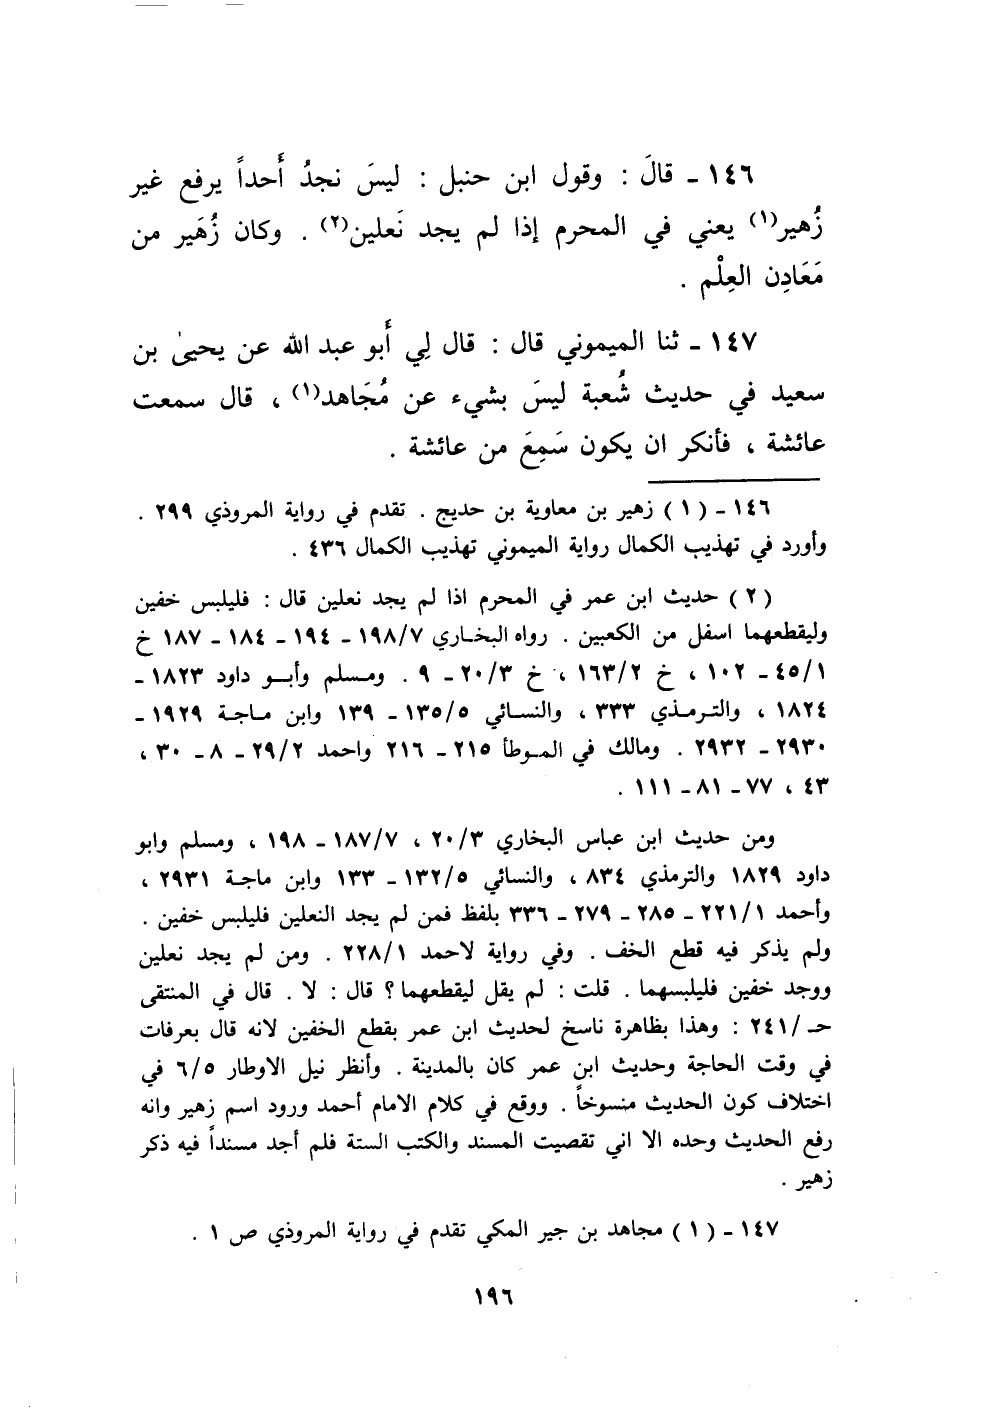 ١٤٦ ـ قالَ : وقول ابن حنبل : ليسَ نجدُ أَحداً يرفع غير
زُهير(١) يعني في المحرم إذا لم يجد نَعلين(٢) . وكان زُهَير من
مَعَادِن العِلْم .
١٤٧ ـ ثنا الميموني قال : قال لِي أَبو عبد الله عن يحيىٰ بن
سعيد في حديث شُعبة ليسَ بشيء عن مُجَاهد(١) ، قال سمعت
عائشة ، فأنكر ان يكون سَمِعَ من عائشة .
١٤٦ ـ (١) زهير بن معاوية بن حديج . تقدم في رواية المروذي ٢٩٩ .
وأورد في تهذيب الكمال رواية الميموني تهذيب الكمال ٤٣٦ .
(٢) حديث ابن عمر في المحرم اذا لم يجد نعلين قال : فليلبس خفين
وليقطعهما اسفل من الكعبين . رواه البخاري ١٩٨/٧ ـ ١٩٤ ـ ١٨٤ ـ ١٨٧ خ
٤٥/١ ـ ١٠٢ ، خ ١٦٣/٢ ، خ ٢٠/٣ ـ ٩ . ومسلم وأبو داود ١٨٢٣ ـ
١٨٢٤ ، والترمذي ٣٣٣ ، والنسائي ١٣٥/٥ ـ ١٣٩ وابن ماجة ١٩٢٩ ـ
٢٩٣٠ ـ ٢٩٣٢ . ومالك في الموطأ ٢١٥ ـ ٢١٦ واحمد ٢٩/٢ ـ ٨ ـ ٣٠ ،
٤٣ ، ٧٧ ـ ٨١ ـ ١١١ .
ومن حديث ابن عباس البخاري ٢٠/٣ ، ١٨٧/٧ ـ ١٩٨ ، ومسلم وابو
داود ١٨٢٩ والترمذي ٨٣٤ ، والنسائي ١٣٢/٥ ـ ١٣٣ وابن ماجة ٢٩٣١ ،
وأحمد ٢٢١/١ ـ ٢٨٥ ـ ٢٧٩ ـ ٣٣٦ بلفظ فمن لم يجد النعلين فليلبس خفين .
ولم يذكر فيه قطع الخف . وفي رواية لاحمد ٢٢٨/١ . ومن لم يجد نعلين
ووجد خفين فليلبسهما . قلت : لم يقل ليقطعهما ؟ قال : لا . قال في المنتقى
حـ /٢٤١ : وهذا بظاهرة ناسخ لحديث ابن عمر بقطع الخفين لانه قال بعرفات
في وقت الحاجة وحديث ابن عمر كان بالمدينة . وأنظر نيل الاوطار ٦/٥ في
اختلاف كون الحديث منسوخاً . ووقع في كلام الامام أحمد ورود اسم زهير وانه
رفع الحديث وحده الا اني تقصيت المسند والكتب الستة فلم أجد مسنداً فيه ذكر
زهير .
١٤٧ ـ (١) مجاهد بن جبر المكي تقدم في رواية المروذي ص ١ .
١٩٦